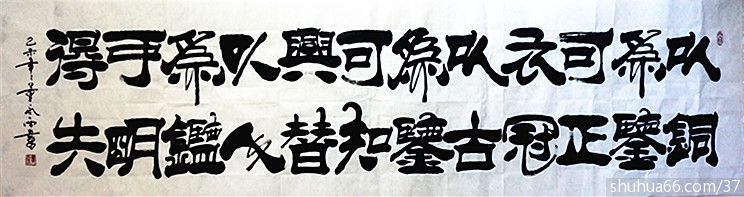 以銅
為鑒
可正
衣冠
以古
為鑒
可知
興替
以人
為鑑
可明
得失
shuhua66.com/37